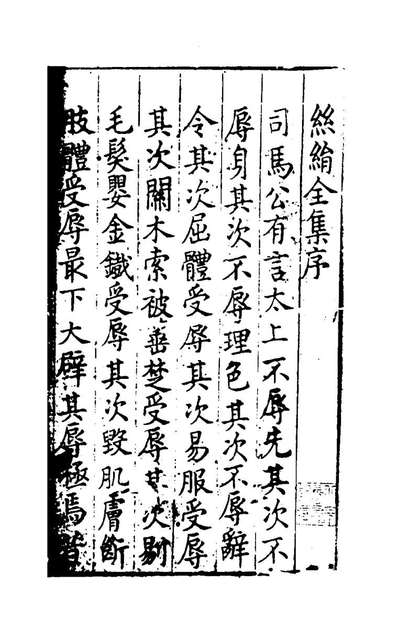 絲絹全集序
司馬公有言太上不辱先其次不
辱身其次不辱理色其次不辱辭
令其次屈體受辱其次易服受辱
其次關木索被箠楚受辱其次剔
毛髮嬰金鐵受辱其次毀肌膚斷
肢體受辱最下大辟其辱極焉